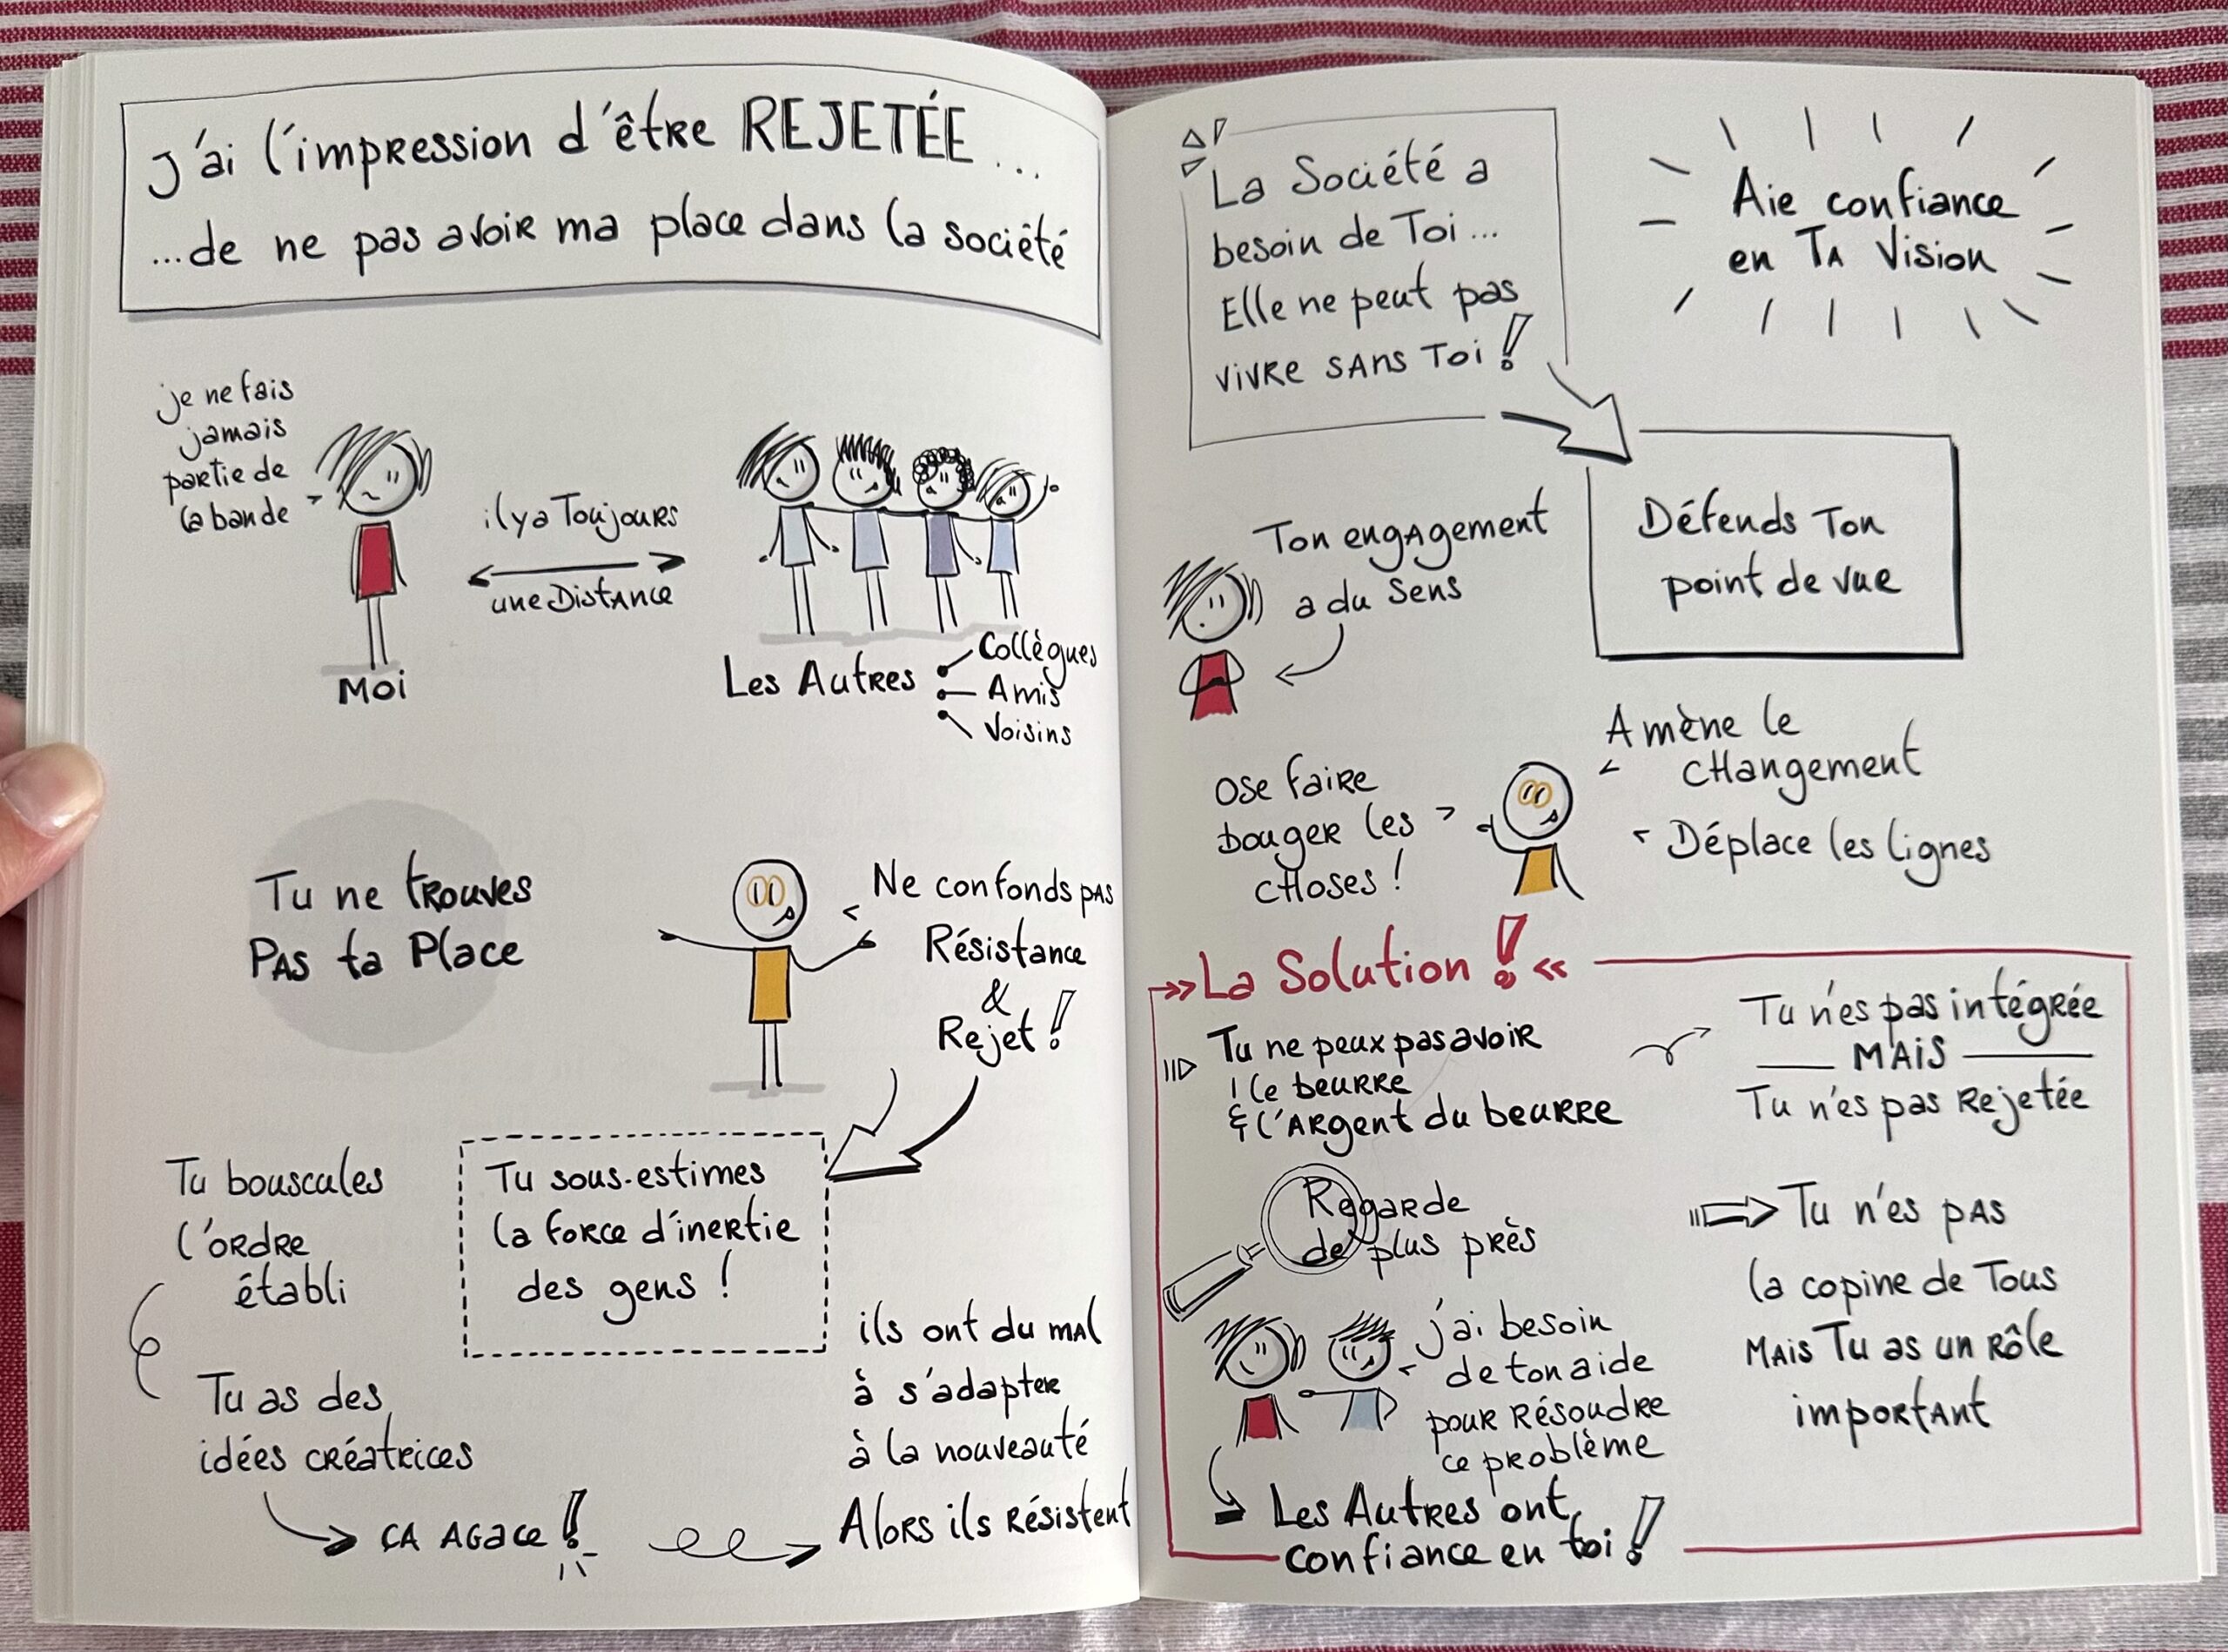 J'ai l'impression d'être REJETÉE...
...de ne pas avoir ma place dans la société
je ne fais
jamais
partie de
la bande
il y a Toujours
une Distance
Moi
Les Autres
Collègues
Amis
Voisins
Tu ne trouves
Pas ta Place
Ne confonds pas
Résistance
&
Rejet !
Tu bouscules
l'ordre
établi
Tu sous-estimes
la force d'inertie
des gens !
Tu as des
idées créatrices
ça agace !
ils ont du mal
à s'adapter
à la nouveauté
Alors ils résistent
La Société a
besoin de Toi...
Elle ne peut pas
vivre sans Toi !
Aie confiance
en Ta Vision
Défends Ton
point de vue
Ton engagement
a du Sens
Ose faire
bouger les
choses !
Amène le
changement
Déplace les lignes
La Solution !
Tu ne peux pas avoir
le beurre
& l'argent du beurre
Tu n'es pas intégrée
MAIS
Tu n'es pas Rejetée
Regarde
de plus près
j'ai besoin
de ton aide
pour résoudre
ce problème
Les Autres ont
confiance en toi !
Tu n'es pas
la copine de Tous
Mais Tu as un rôle
important